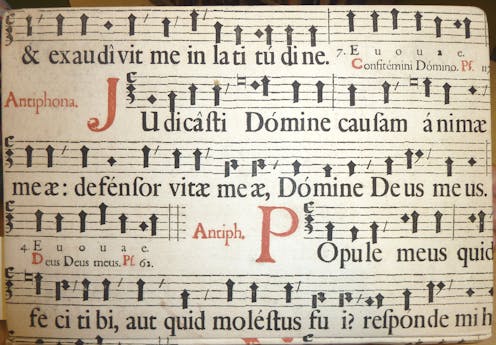 & exaudívit me in latitúdine. 7. E u o u a e.
Confitémini Dómino. Ps. 117
Antiphona. JUdicásti Dómine causam ánimæ
meæ: defénsor vitæ meæ, Dómine Deus meus.
4. E u o u a e.
Deus Deus meus. Ps. 62.
Antiph. POpule meus quid
feci tibi, aut quid moléstus fui? respónde mih